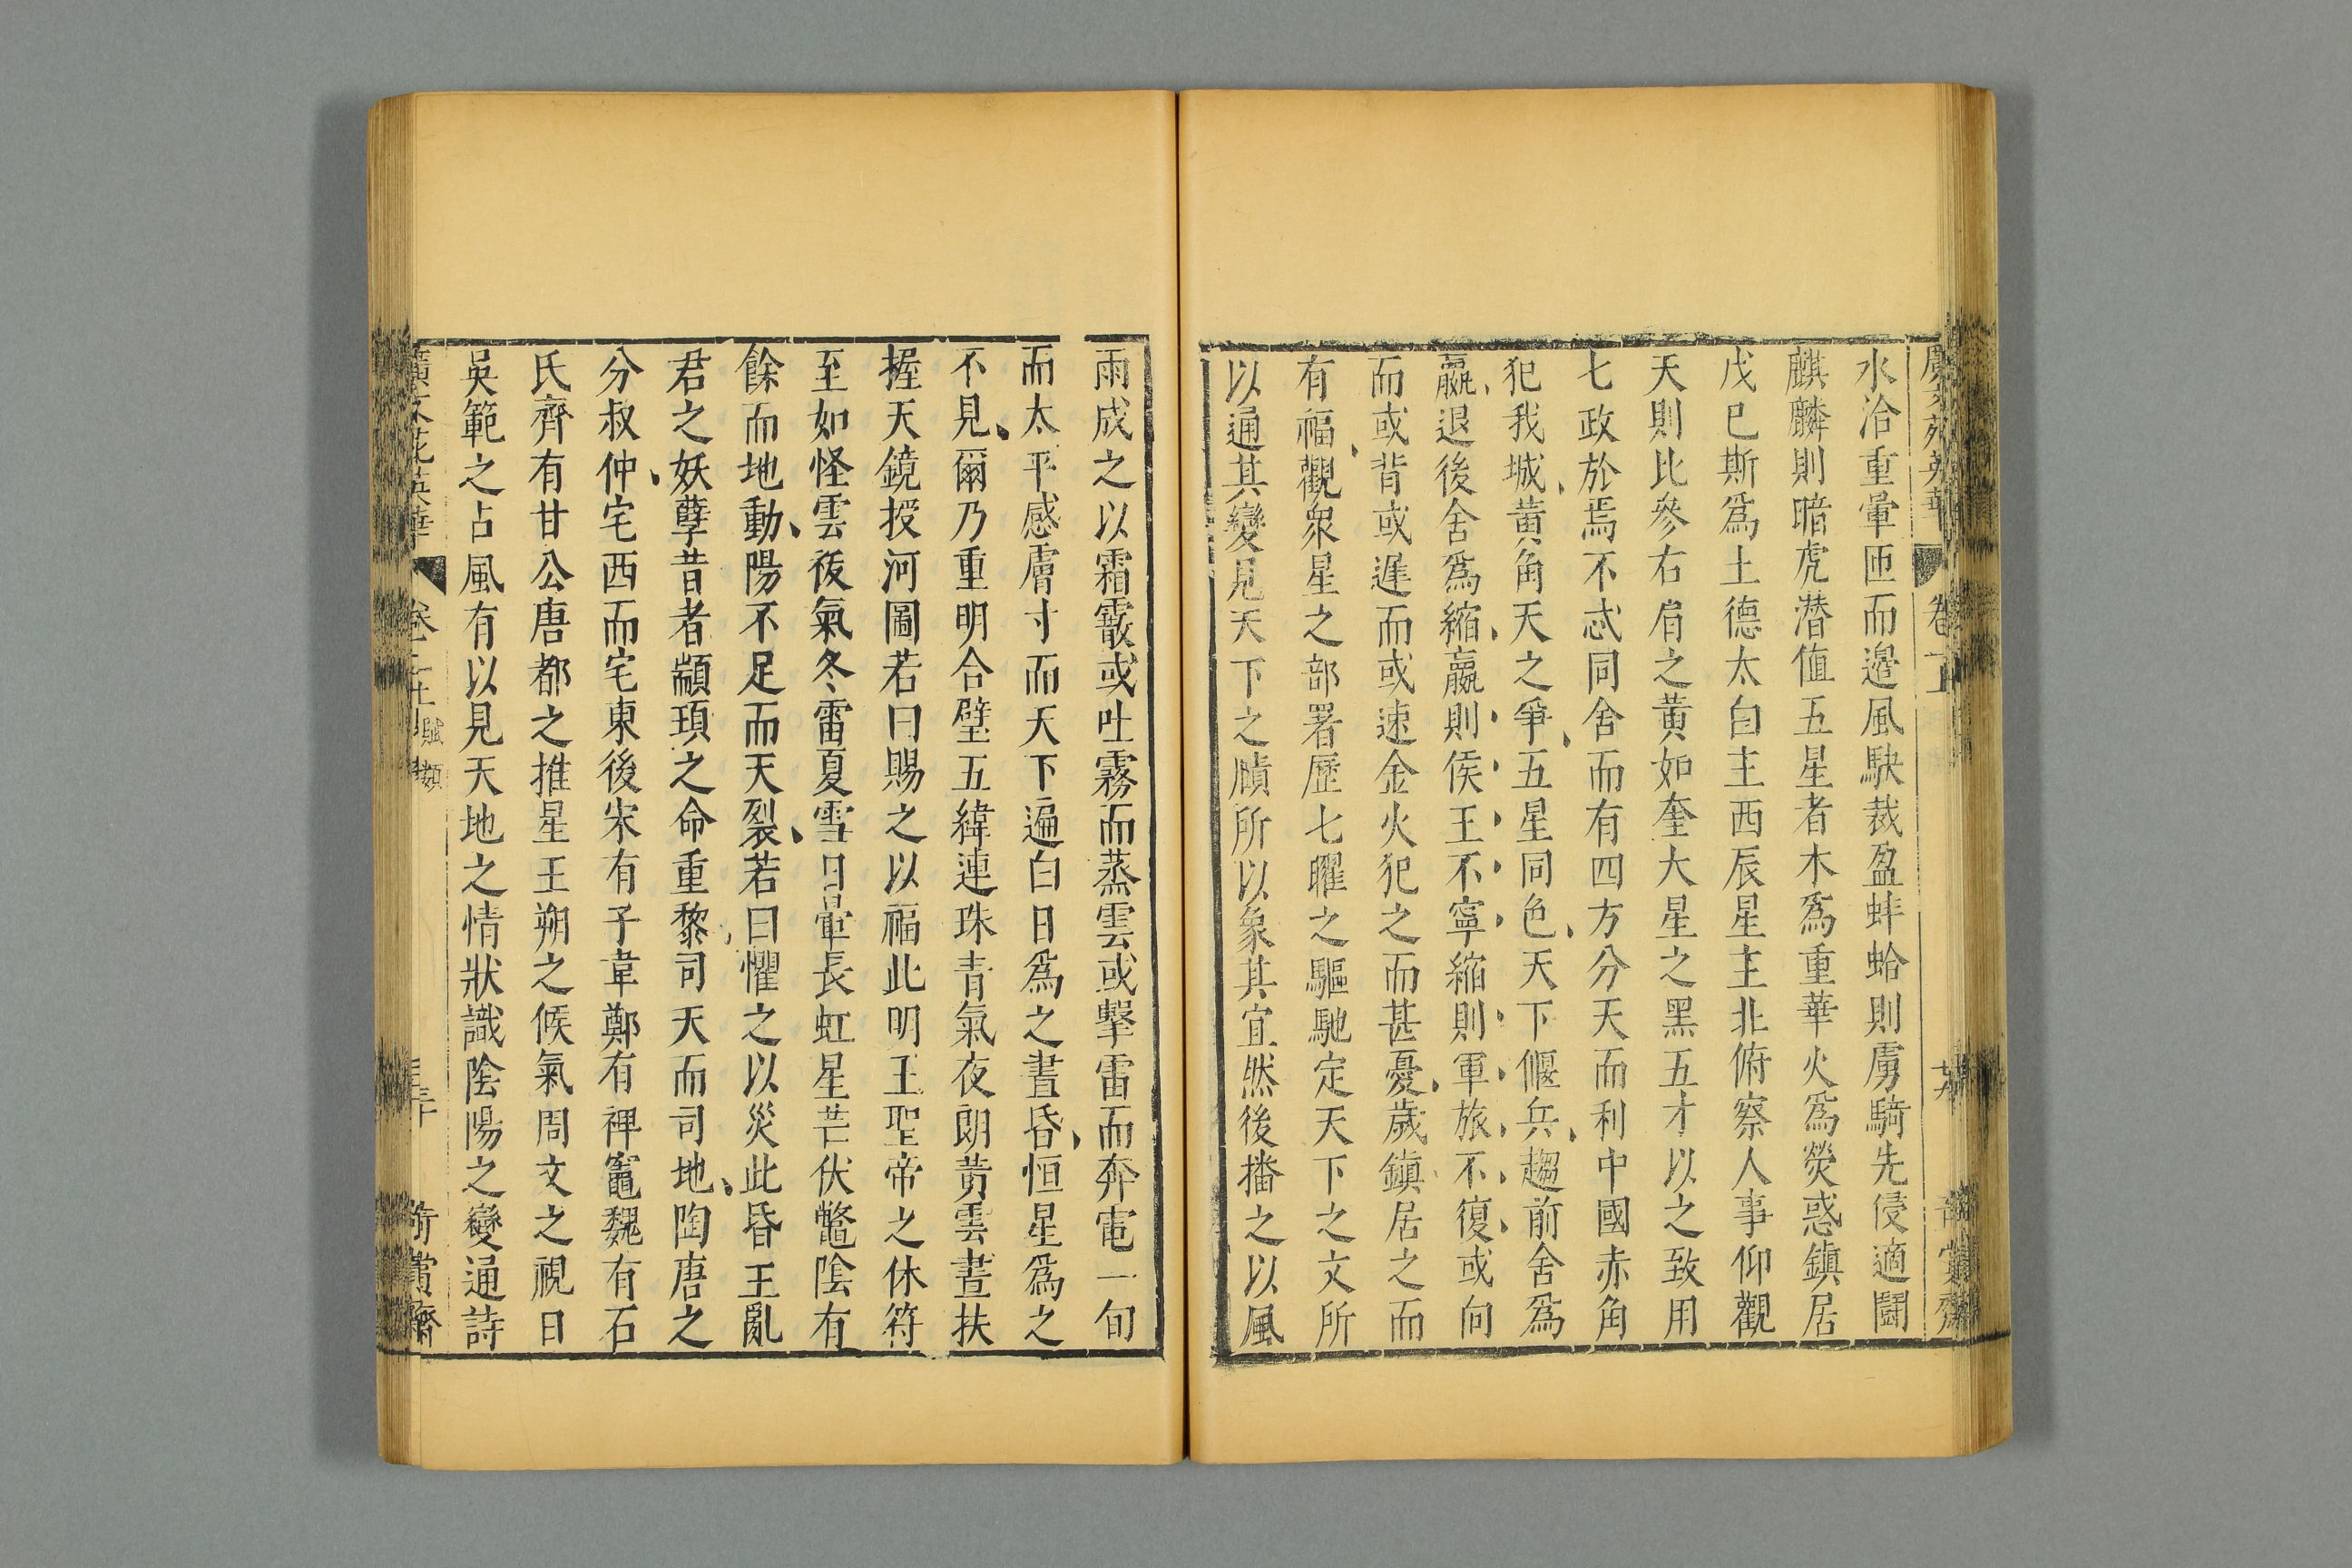 水洽重暈匝而邊風駃裁盈蚌蛤則虜騎先侵適鬪
麒麟則暗虎潛值五星者木爲重華火爲熒惑鎮居
戊巳斯爲土德太白主西辰星主北俯察人事仰觀
天則比參右肩之黃如奎大星之黑五才以之致用
七政於焉不忒同舍而有四方分天而利中國赤角
犯我城黃角天之爭五星同色天下偃兵趨前舍爲
嬴退後舍爲縮嬴則侯王不寧縮則軍旅不復或向
而或背或遲而或速金火犯之而甚憂歲鎮居之而
有福觀衆星之部署歷七曜之驅馳定天下之文所
以通其變見天下之賾所以象其宜然後播之以風
雨成之以霜霰或吐霧而蒸雲或擊雷而奔電一旬
而太平感膚寸而天下遍白日爲之晝昏恒星爲之
不見爾乃重明合璧五緯連珠青氣夜朗黃雲晝扶
握天鏡授河圖若曰賜之以福此明王聖帝之休符
至如怪雲䘲氣冬雷夏雪日暈長虹星芒伏鼈陰有
餘而地動陽不足而天裂若曰懼之以災此昏王亂
君之妖孽昔者顓頊之命重黎司天而司地陶唐之
分叔仲宅西而宅東後宋有子韋鄭有裨竈魏有石
氏齊有甘公唐都之推星王朔之候氣周文之視日
吳範之占風有以見天地之情狀識陰陽之變通詩
廣文苑英華 卷 賦類